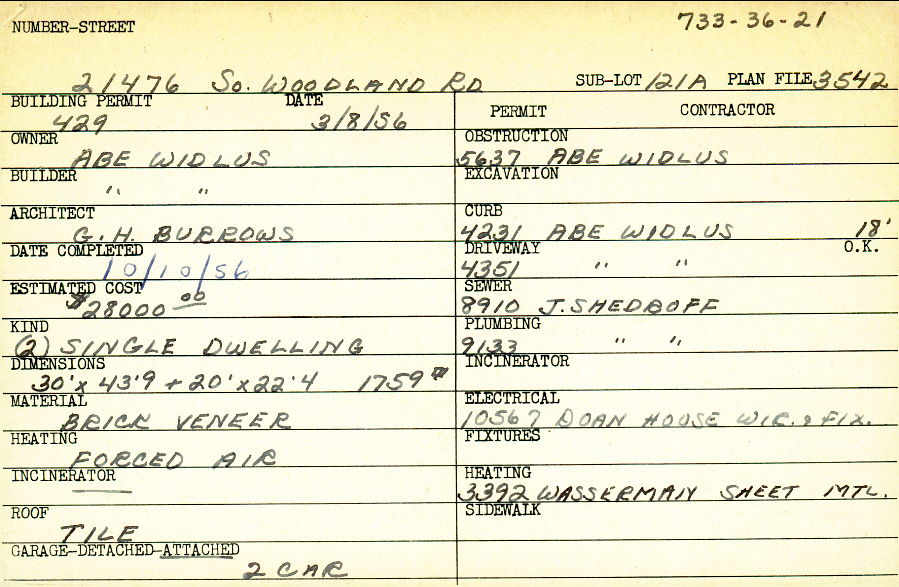 733-36-21
NUMBER-STREET
21476 So. WOODLAND RD SUB-LOT 121A PLAN FILE 3542
BUILDING PERMIT DATE
429 3/8/56
OWNER
ABE WIDLUS
BUILDER
" "
ARCHITECT
G.H. BURROWS
DATE COMPLETED
10/10/56
ESTIMATED COST
$28000 00
KIND
(2) SINGLE DWELLING
DIMENSIONS
30' x 43'9 + 20' x 22'4 1759
MATERIAL
BRICK VENEER
HEATING
FORCED AIR
INCINERATOR
ROOF
TILE
GARAGE-DETACHED-ATTACHED
2 CAR
PERMIT CONTRACTOR
OBSTRUCTION
5637 ABE WIDLUS
EXCAVATION
CURB
4231 ABE WIDLUS 18'
DRIVEWAY O.K.
4351 " "
SEWER
8910 J. SHEDROFF
PLUMBING
9133 " "
INCINERATOR
ELECTRICAL
10567 DOAN HOUSE WIR. & FIX.
FIXTURES
HEATING
3392 WASSERMAN SHEET MTL.
SIDEWALK